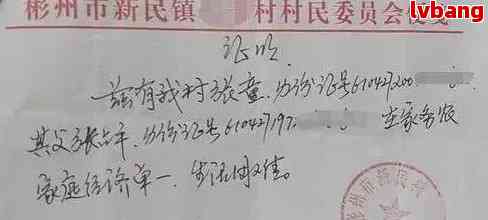 lvbang
彬州市新民镇 村村民委员会
证明
兹有我村张童,身份证号610427200
其父张占年,身份证号610427197 在家务农
家庭经济单一、生活困难。
彬州市新民